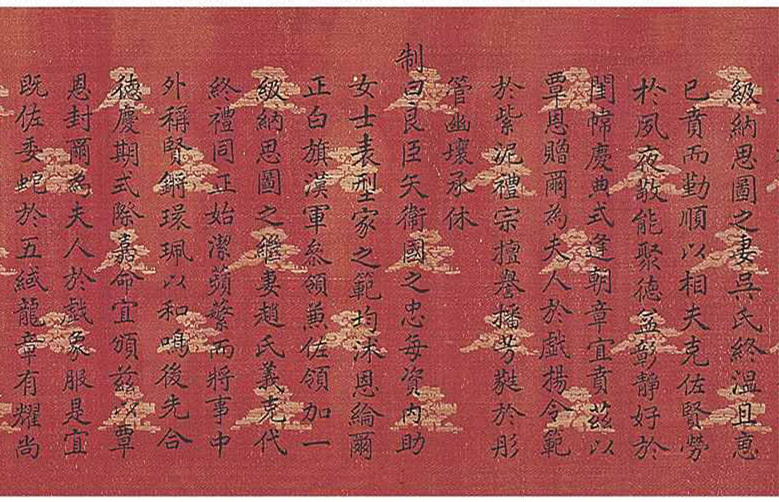 級納思圖之妻吳氏終溫且惠
已賁而勤順以相夫克佐賢勞
於夙夜敬能聚德益彰靜好於
閨幃慶典式逢朝章宜賁茲以
覃恩贈爾為夫人於戲揚令範
於紫泥禮宗擅譽播芳蕤於彤
管幽壤承休
制曰良臣矢衛國之忠每資內助
女士表型家之範均沐恩綸爾
正白旗漢軍參領兼佐領加一
級納思圖之繼妻趙氏義克代
終禮同正始潔蘋蘩而將事中
外稱賢鏘環珮以和鳴後先合
德慶期式際嘉命宜頒茲以覃
恩封爾為夫人於戲象服是宜
既佐委蛇於五緎龍章有耀尚